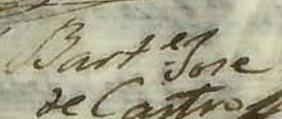 Bart.es Jose
de Castro